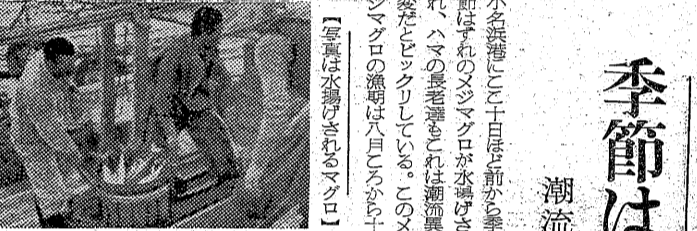 季節は
潮流
小名浜港にここ十日ほど前から季
節はずれのメジマグロが水揚げさ
れ、ハマの長老達もこれは潮流異
変だとビックリしている。このメ
ジマグロの漁期は八月ころから十
【写真は水揚げされるマグロ】